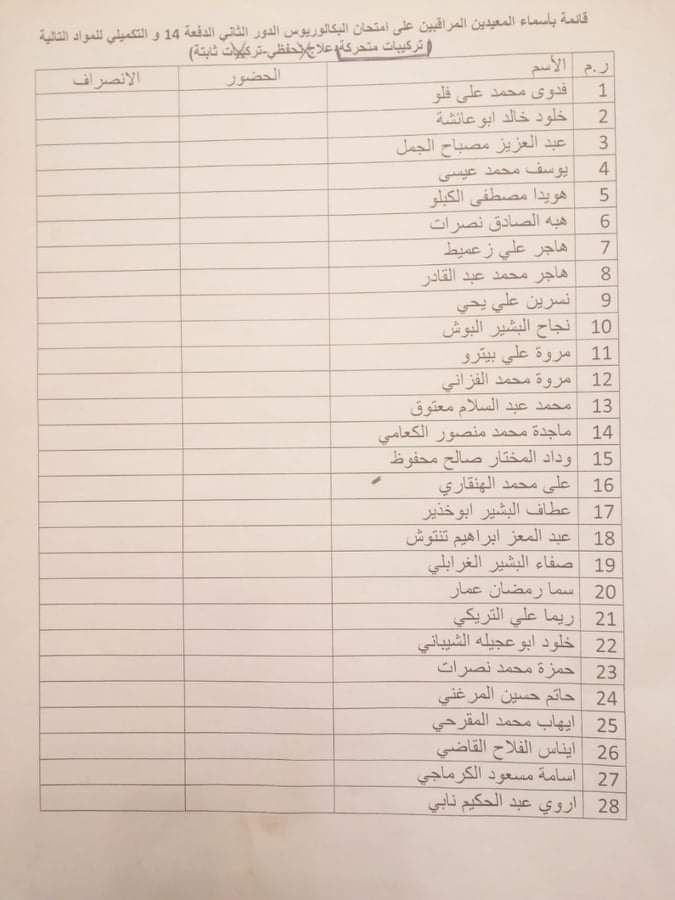 قائمة بأسماء المعيدين المراقبين على امتحان البكالوريوس الدور الثاني الدفعة 14 و التكميلي للمواد التالية
( تركيبات متحركة-علاج تحفظي-تركيبات ثابتة)
ر.م الأسم الحضور الانصراف
1 فدوى محمد على فلو
2 خلود خالد ابوعائشة
3 عبد العزيز مصباح الجمل
4 يوسف محمد عيسى
5 هويدا مصطفى الكبلو
6 هبه الصادق نصرات
7 هاجر علي زعميط
8 هاجر محمد عبد القادر
9 نسرين علي يحي
10 نجاح البشير البوش
11 مروة علي بيترو
12 مروة محمد الفزاني
13 محمد عبد السلام معتوق
14 ماجدة محمد منصور الكعامي
15 وداد المختار صالح محفوظ
16 على محمد الهنقاري
17 عطاف البشير ابوخذير
18 عبد المعز ابراهيم تنتوش
19 صفاء البشير الغرابلي
20 سما رمضان عمار
21 ريما علي التريكي
22 خلود ابوعجيله الشيباني
23 حمزة محمد نصرات
24 حاتم حسين المرغني
25 ايهاب محمد المقرحي
26 ايناس الفلاح القاضي
27 اسامة مسعود الكرماجي
28 اروي عبد الحكيم نابي